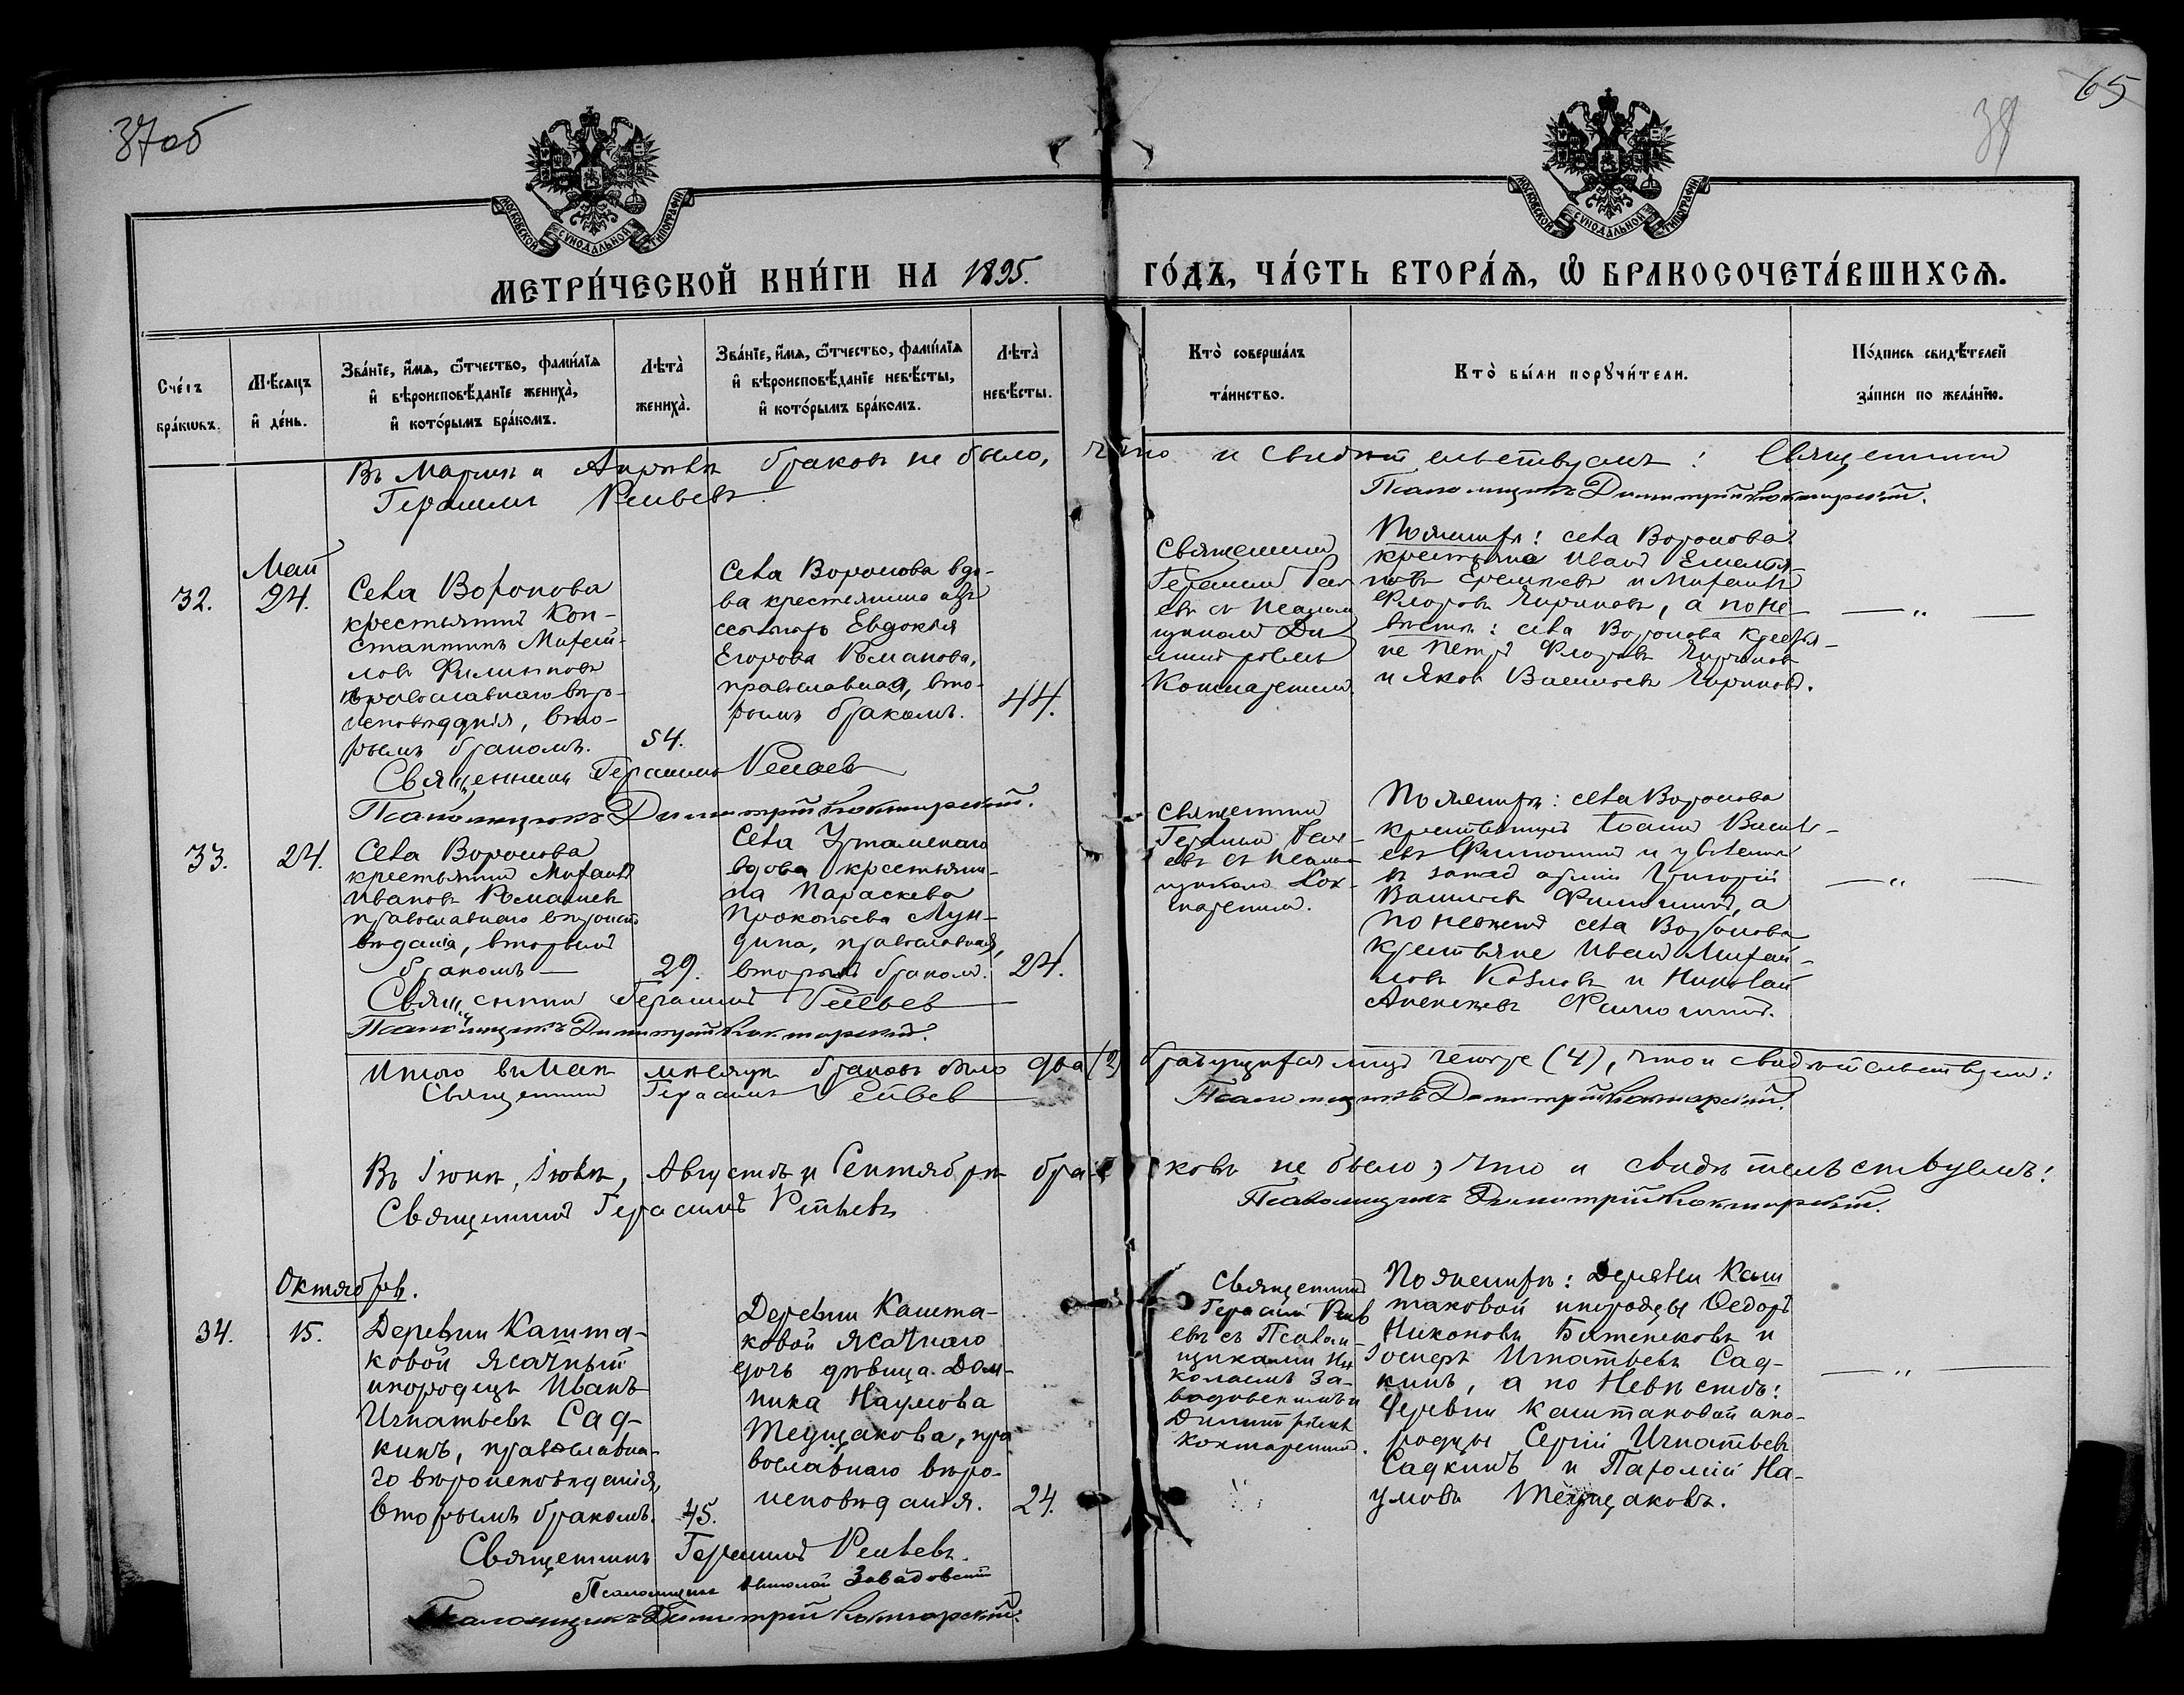 37об
65
38
МОСКОВСКОЙ СѴНОДАЛЬНОЙ ТИПОГРАФІИ
МОСКОВСКОЙ СѴНОДАЛЬНОЙ ТИПОГРАФІИ
МЕТРИ́ЧЕСКОЙ КНИ́ГИ НА 1895. ГО́ДЪ, ЧА́СТЬ ВТОРА́Я, Ѡ҆ БРАКОСОЧЕТА́ВШИХСЯ.
Сче́тъ
бра́кѡвъ.
Мѣ́сяцъ
и҆ де́нь.
Зва́нїе, и҆́мя, ѻ҆́тчество, фами́лїя
и҆ вѣроисповѣ́данїе жениха̀,
и҆ кото́рымъ бра́комъ.
Лѣта̀
жениха̀.
Зва́нїе, и҆́мя, ѻ҆́тчество, фами́лїя
и҆ вѣроисповѣ́данїе невѣ́сты,
и҆ кото́рымъ бра́комъ.
Лѣта̀
невѣ́сты.
Кто̀ соверша́лъ
та́инство.
Кто̀ бы́ли порꙋчи́тели.
По́дпись свидѣ́телей
за́писи по жела́нїю.
Въ Мартѣ и Апрѣлѣ браковъ не было, что и свидѣтельствуемъ: Священникъ
Герасимъ
Псаломщикъ Димитрій Коктарскій.
Май
32.
24.
Села Воронова
крестьянинъ Кон-
стантинъ Михай-
ловъ Филиповъ
православнаго вѣро-
исповѣданія, вто-
рымъ бракомъ.
54.
Села Воронова вдо-
ва крестьянина
Евдокія
Егорова Романова,
православная, вто-
рымъ бракомъ.
44.
Священникъ
Герасимъ
евъ съ псалом
щикомъ Ди
митріемъ
Коктарскимъ.
По женихѣ: села Воронова
крестьяне Иванъ
и Михаилъ
Флоровъ, а по не-
вѣстѣ: села Воронова крестья-
не Петръ Флоровъ
и Яковъ Васильевъ
— " —
Священникъ Герасимъ
Псаломщикъ Димитрій Коктарскій.
33.
24.
Села Воронова
крестьянинъ Михаилъ
Ивановъ Романовъ
православнаго вѣроиспо
вѣданія, вторымъ
бракомъ —
29.
Села
вдова крестьяни-
на Параскева
Прокопьева Мун-
дина, православная,
вторымъ бракомъ.
24.
Священникъ
Герасимъ
евъ съ псалом
щикомъ Кок-
тарскимъ.
По женихѣ: села Воронова
крестьянинъ Іоаннъ Василь-
евъ и уволенный
въ запасъ арміи Григорій
Васильевъ, а
по невѣстѣ села Воронова
крестьяне Иванъ Михай-
ловъ Козловъ и Николай
Алексѣевъ
— " —
Священникъ Герасимъ
Псаломщикъ Димитрій Коктарскій.
Итого въ Маѣ мѣсяцѣ браковъ было два (2) брачущихся лицъ четыре (4), что и свидѣтельствуемъ:
Священникъ Герасимъ
Псаломщикъ Димитрій Коктарскій.
Въ Іюнѣ, Іюлѣ, Августѣ и Сентябрѣ бра- ковъ не было, что и свидѣтельствуемъ:
Священникъ Герасимъ
Псаломщикъ Димитрій Коктарскій.
Октябрь.
34.
15.
Деревни Кашта-
ковой ясачный
инородецъ Иванъ
Игнатьевъ Сад-
кинъ, православна-
го вѣроисповѣданія,
вторымъ бракомъ.
45.
Деревни Кашта-
ковой ясачнаго
дочь дѣвица Дом-
ника Наумова
Тещакова, пра
вославнаго вѣро-
исповѣданія.
24.
Священникъ
Герасимъ
евъ съ Псалом-
щиками Ни-
колаемъ За-
вадовскимъ и
Димитріемъ
Коктарскимъ.
По женихѣ: Деревни Каш
таковой инородцы Ѳедоръ
Никоновъ и
Іосифъ Игнатьевъ Сад-
кинъ, а по Невѣстѣ:
деревни Каштаковой ино-
родцы Сергій Игнатьевъ
Садкинъ и На-
умовъ Тещаковъ.
— " —
Священникъ Герасимъ
Псаломщикъ Николай Завадовскій
Псаломщикъ Димитрій Коктарскій.